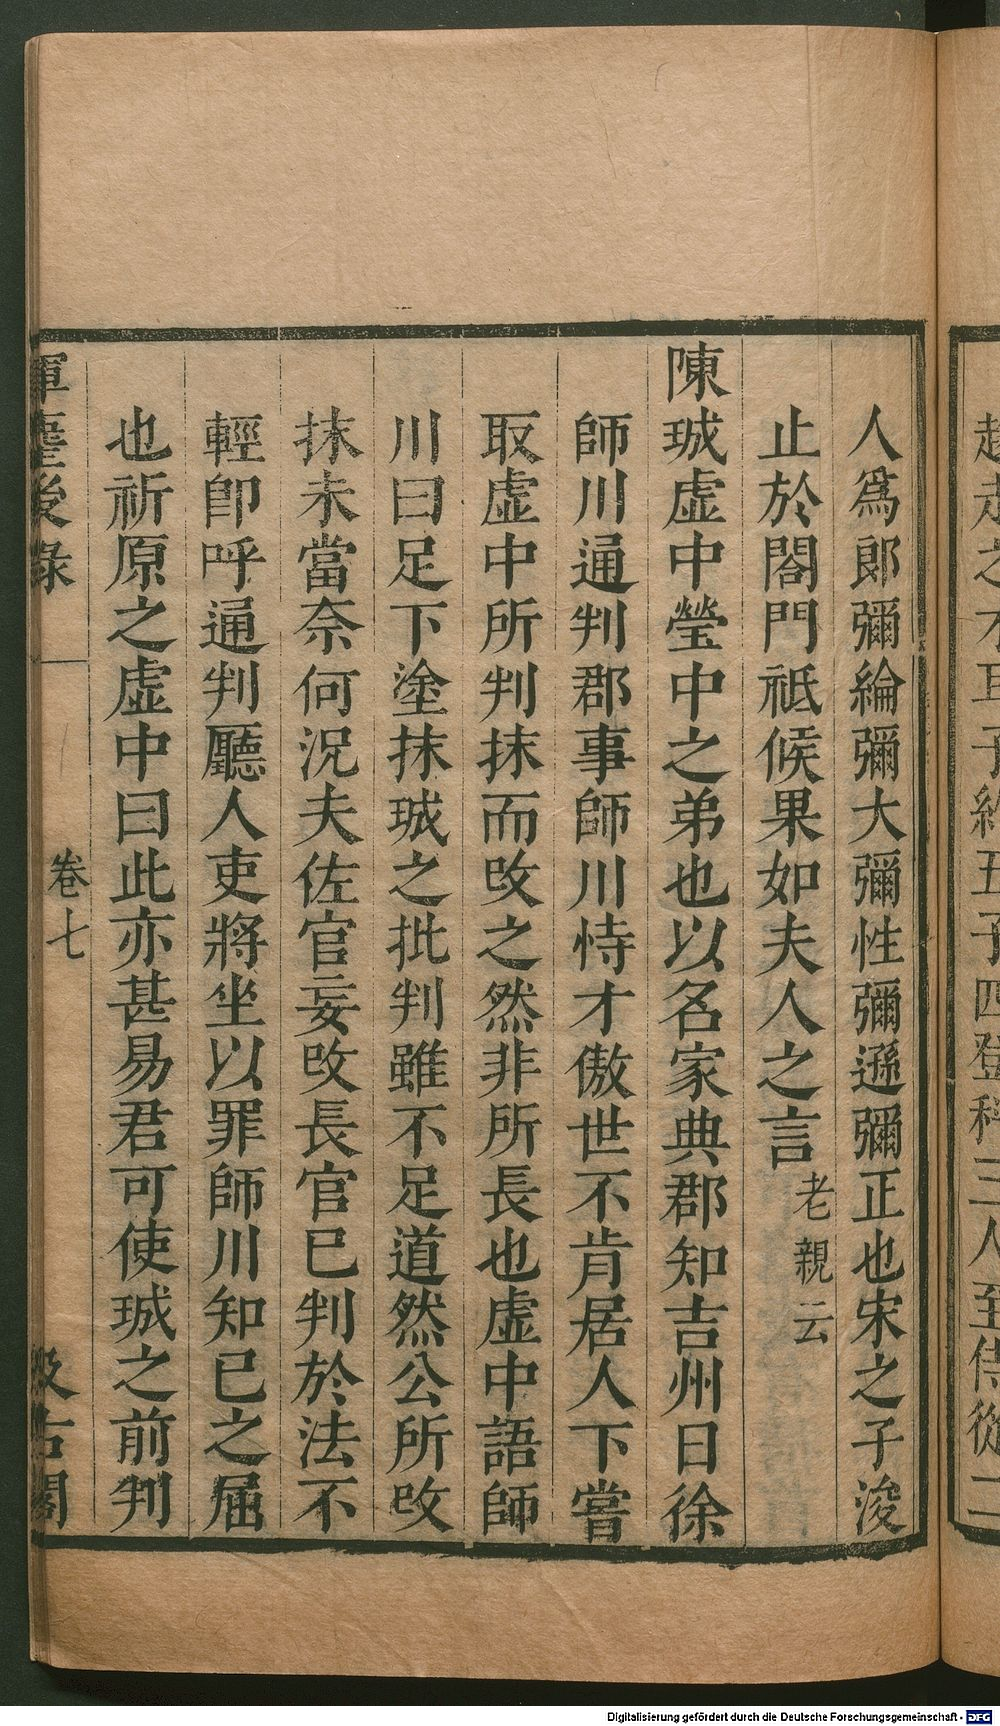 人爲郞彌綸彌大彌性彌遜彌正也宋之子浚
止於閤門祗候果如夫人之言老親云
陳珹虛中瑩中之弟也以名家典郡知吉州日徐
師川通判郡事師川恃才傲世不肯居人下嘗
取虛中所判抹而改之然非所長也虛中語師
川曰足下塗抹珹之批判雖不足道然公所改
抹未當奈何況夫佐官妄改長官已判於法不
輕卽呼通判廳人吏將坐以罪師川知已之屈
也祈原之虛中曰此亦甚易君可使珹之前判
揮麈後錄
卷七
汲古閣
Digitalisierung gefördert durch die Deutsche Forschungsgemeinschaft - DFG